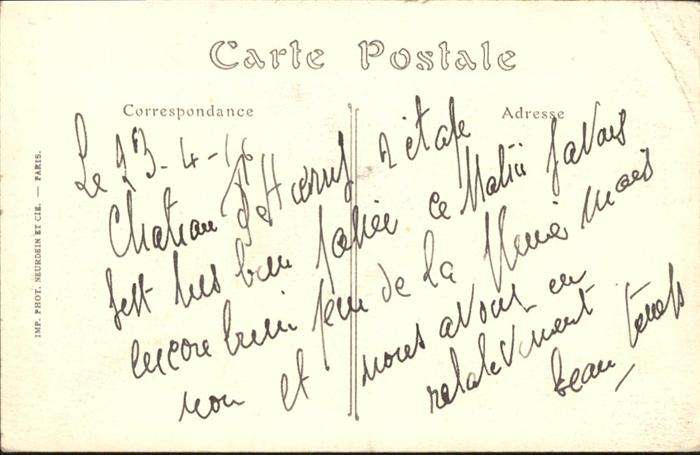 Carte Postale
Correspondance
Adresse
Le 23-4-1
Chateau d' 2 étape
sest tres bien passée ce Matin javais
encore bien peur de la pluie mais
non et nous avons eu
relativement
beau temps
IMP. PHOT. NEURDEIN ET CIE. — PARIS.